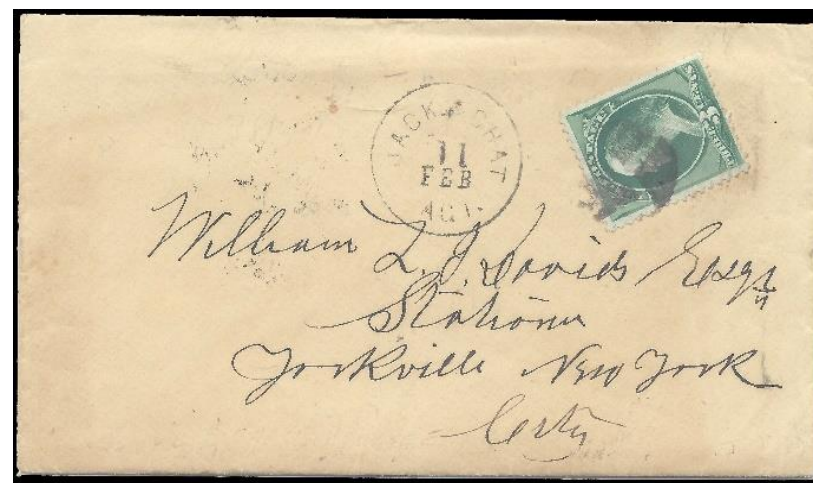 JACK. & CHAT
11
FEB
AGT.
William L. J. Davids Esqr
Stationer
Yorkville New York
City